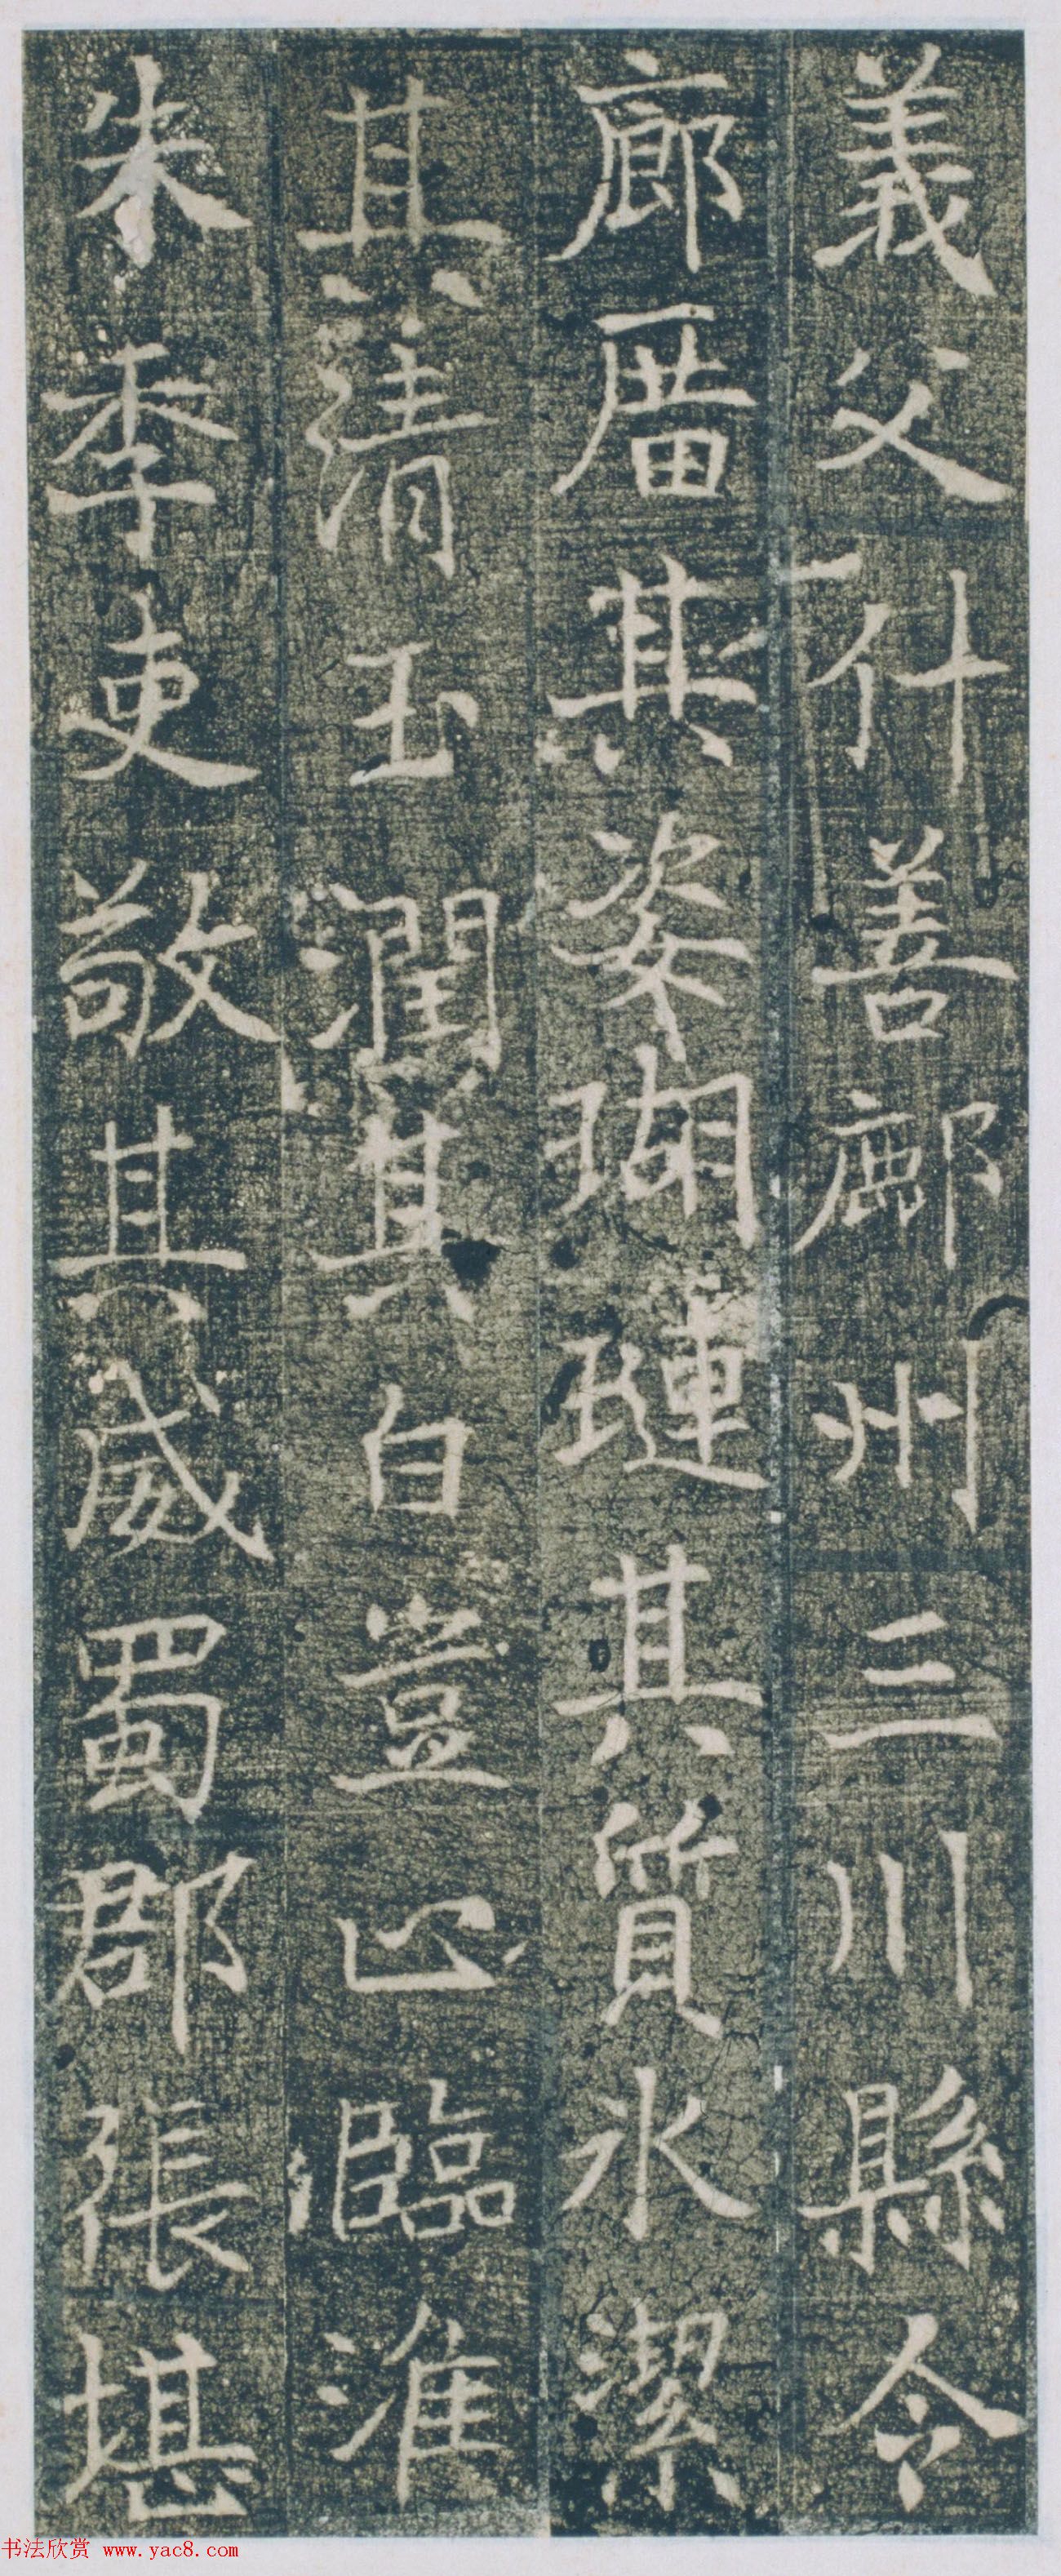 義父什善鄜州三川縣令
廊庿其姿瑚璉其質水潔
其清玉潤其白豈止臨淮
朱季吏敬其威蜀郡張堪
书法欣赏 www.yac8.com